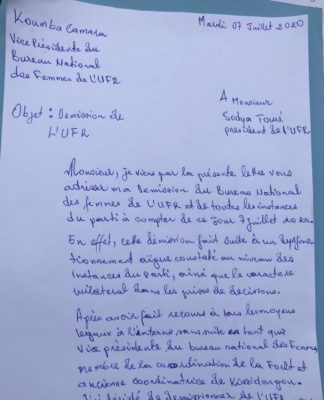 Koumba Camara
Mardi 07 Juillet 2020
Vice Présidente du
Bureau National
des Femmes de L'UFR
Objet : Demission de
L'UFR
A Monsieur
Sidya Touré
president de l'UFR
Monsieur, je viens par la présente lettre vous
adresser ma Demission du Bureau National
des femmes de L'UFR et de toutes les instances
du parti à compter de ce Jour 7 juillet 2020.
En effet, cette démission fait suite à un dysfonc
tionnement aigue constaté au niveau des
instances du parti, ainsi que le caractere
unilateral dans les prises de decisions.
Après avoir fait recours à tous les moyens
legaux à l'interne sans suite en tant que
Vice présidente du bureau national des Femmes,
membre de la coordination de la Forêt et
ancienne coordinatrice de Kissidougou.
J'ai décidé de demissionner de l'UFR